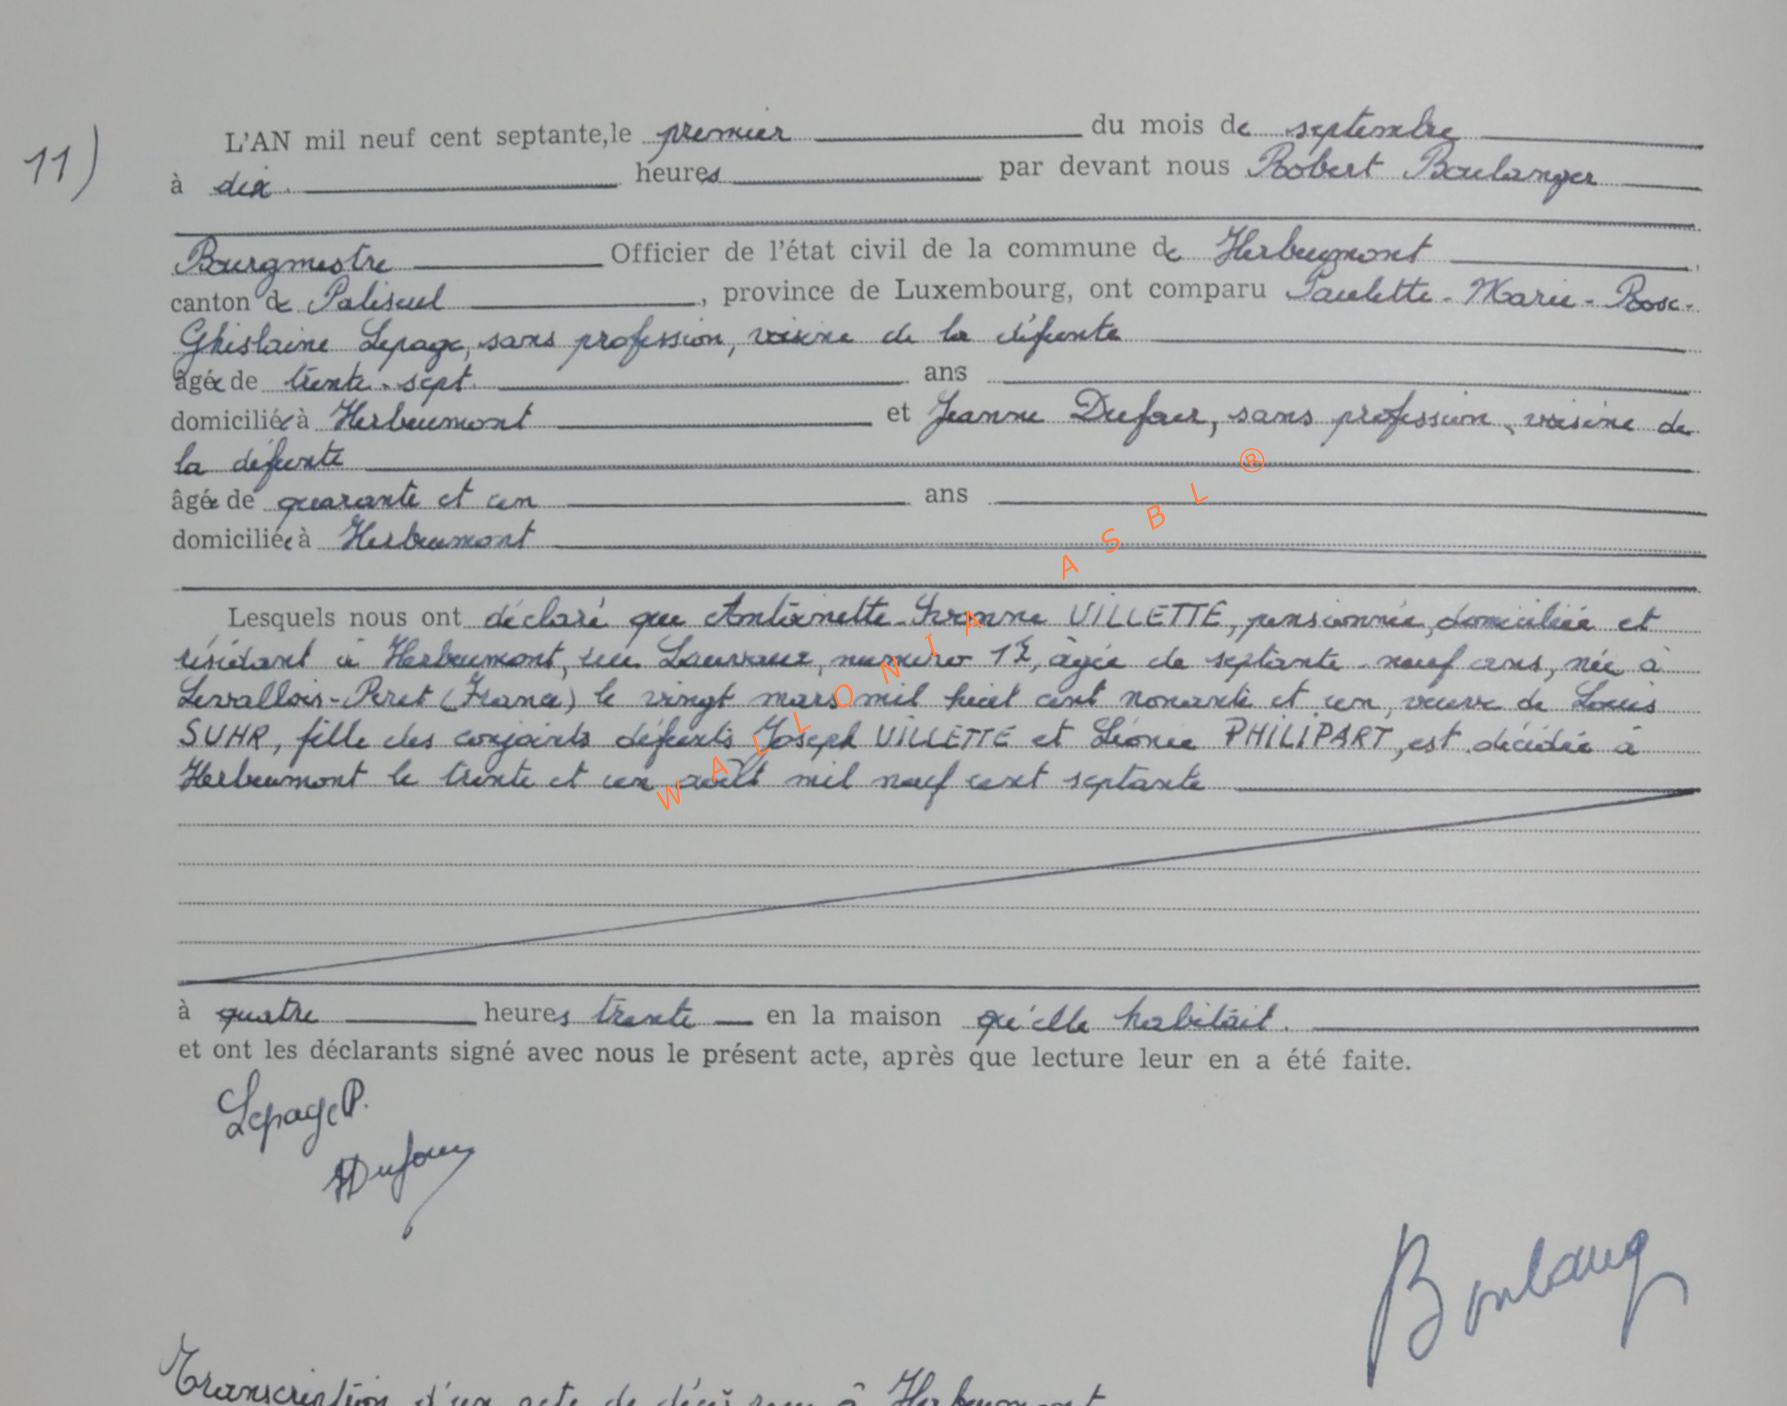 11)
L'AN mil neuf cent septante, le premier du mois de septembre
à dix heures par devant nous Robert Boulanger
Bourgmestre Officier de l'état civil de la commune de Herbeumont,
canton de Paliseul, province de Luxembourg, ont comparu Paulette-Marie-Rose-
Ghislaine Lepage, sans profession, voisine de la défunte
âgée de trente-sept ans
domiciliée à Herbeumont et Jeanne Dufour, sans profession, voisine de
la défunte
âgée de quarante et un ans
domiciliée à Herbeumont
Lesquels nous ont déclaré que Antoinette-Yvonne VILLETTE, pensionnée, domiciliée et
résidant à Herbeumont, rue Lauvaux, numéro 17, âgée de septante-neuf ans, née à
Levallois-Peret (France) le vingt mars mil huit cent nonante et un, veuve de Louis
SUHR, fille des conjoints défunts Joseph VILLETTE et Léonie PHILIPART, est décédée à
Herbeumont le trente et un août mil neuf cent septante
à quatre heures trente en la maison qu'elle habitait.
et ont les déclarants signé avec nous le présent acte, après que lecture leur en a été faite.
Lepage P.
JDufour
Boulang
Transcription d'un acte de décès reçu à Herbeumont
WALLONIA ASBL ®